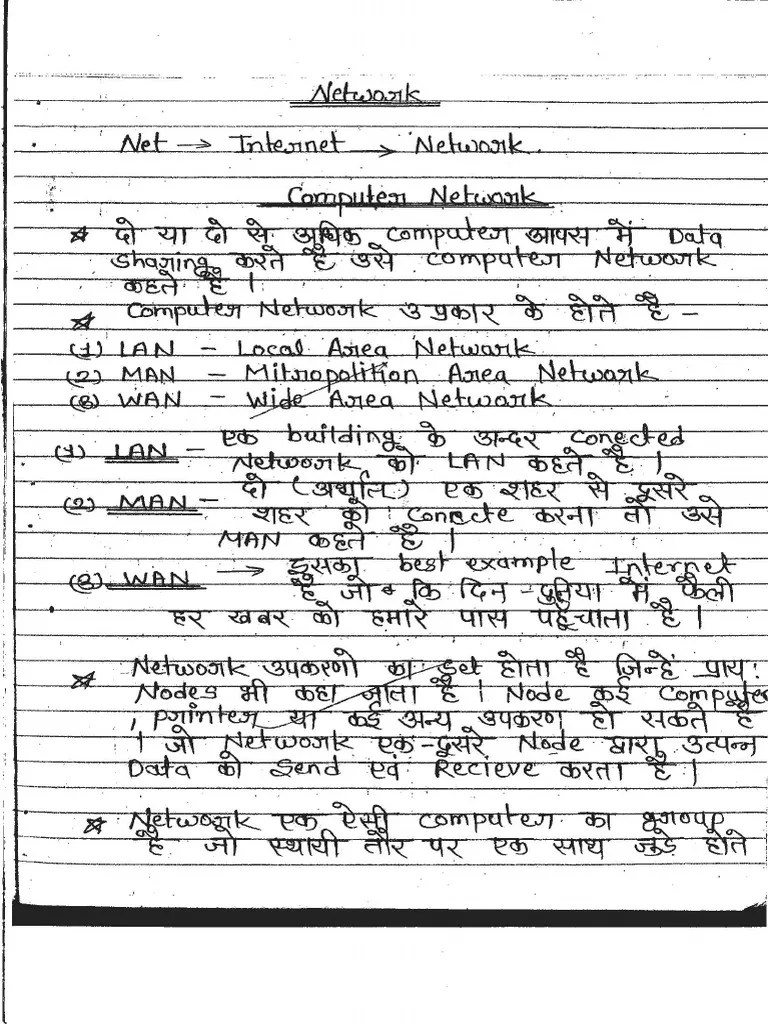 Network
Net → Internet → Network.
Computer Network
★ दो या दो से अधिक computer आपस में Data
sharing करते है उसे computer Network
कहते है ।
★ Computer Network 3 प्रकार के होते है –
(1) LAN – Local Area Network
(2) MAN – Mitropolition Area Network
(3) WAN – Wide Area Network
(1) LAN – एक building के अन्दर conected
Network को LAN कहते है ।
(2) MAN – दो (अर्थात) एक शहर से दूसरे
शहर को conecte करना तो उसे
MAN कहते है ।
(3) WAN → इसका best example Internet
है जो कि दिन-दुनिया में फैली
हर खबर को हमारे पास पहुँचाता है ।
★ Network उपकरणो का set होता है जिन्हें प्राय:
Nodes भी कहा जाता है । Node कई Computer
, printer या कई अन्य उपकरण हो सकते है
। जो Network एक-दूसरे Node द्वारा उत्पन्न
Data को Send एवं Recieve करता है ।
★ Network एक ऐसी computer का group
है जो स्थायी तौर पर एक साथ जुड़े होते